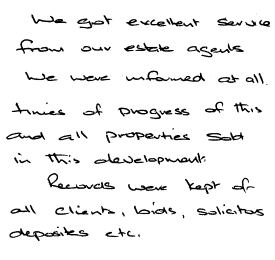 We got excellent service
from our estate agents
We were informed at all.
times of progress of this
and all properties sold
in this development.
Records were kept of
all clients, bids, solicitors
deposites etc.